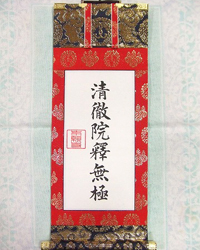 清徹院釋無極